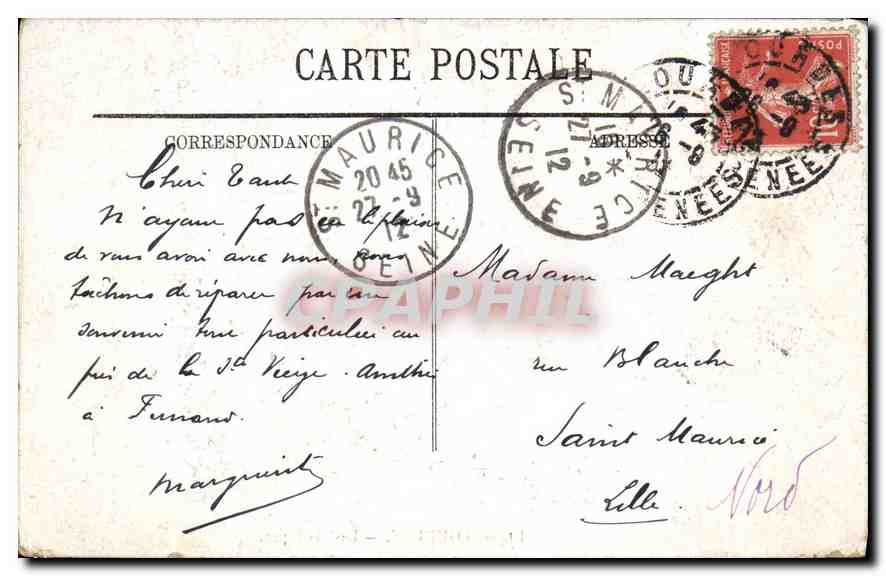 CARTE POSTALE
CORRESPONDANCE
ADRESSE
St MAURICE
20 45
27 - 9
12
SEINE
St MAURICE
27 - 9
12
SEINE
POSTES
Cheri Tante
N'ayant pas eu le plaisir
de vous avoir avec nous, nous
tâchons de réparer par un
souvenir tout particulier au
près de la Ste Vierge. Amitiés
à Fernand.
Marguerite
Madame Maeght
rue Blanche
Saint Maurice
Lille
Nord
CPAPHIL